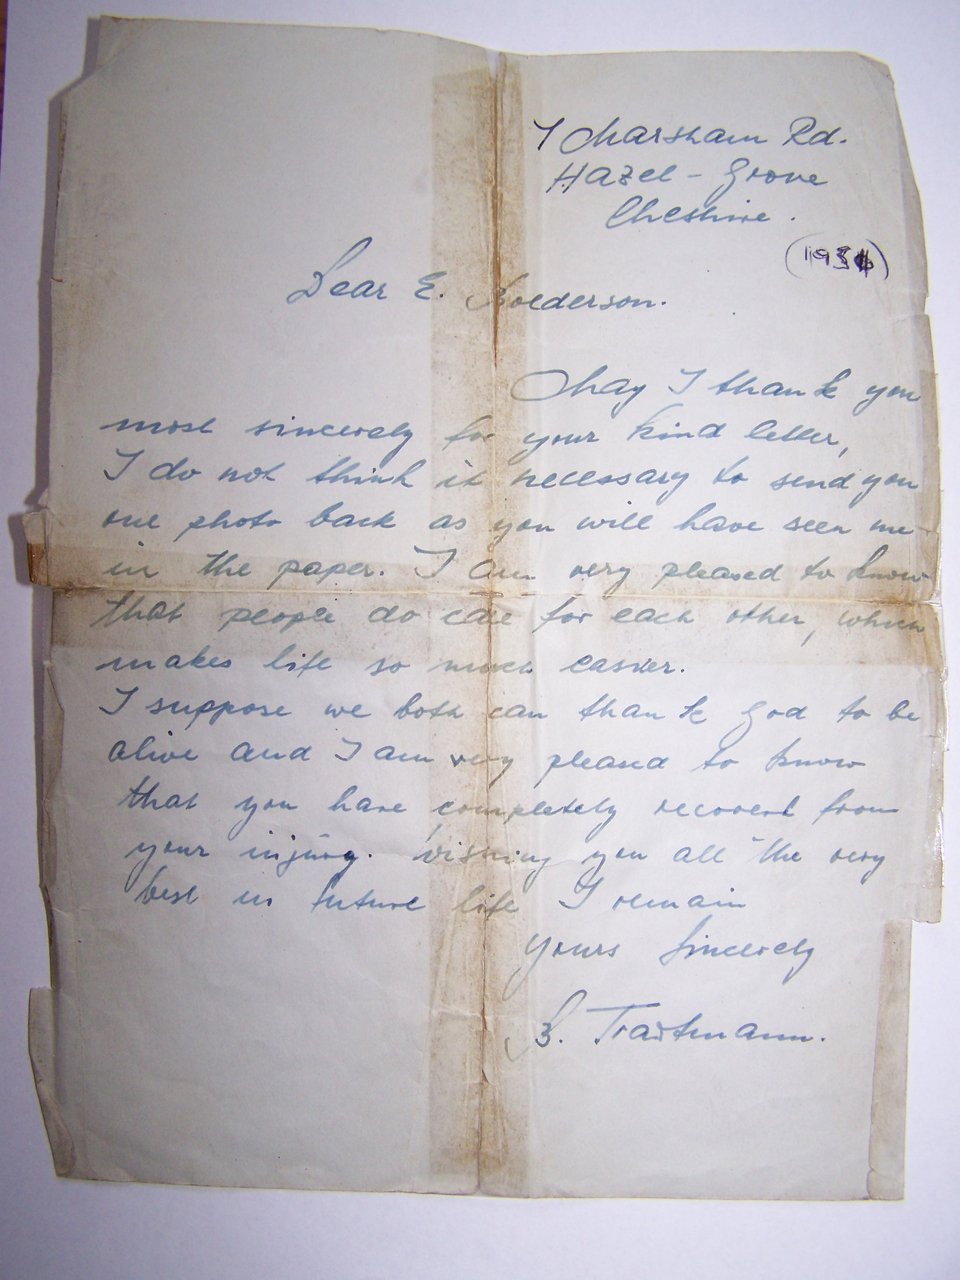 7 Charsham Rd.
Hazel - Grove
Cheshire.
Dear E.
Okay I thank you
most sincerely for your kind letter,
I do not think it necessary to send you
one photo back as you will have seen me
in the paper. I am very pleased to know
that people do care for each other, which
makes life so much easier.
I suppose we both can thank God to be
alive and I am very pleased to know
that you have completely recovert from
your injury. Wishing you all the very
best in future life I remain
yours Sincerely
B. Trautmann.